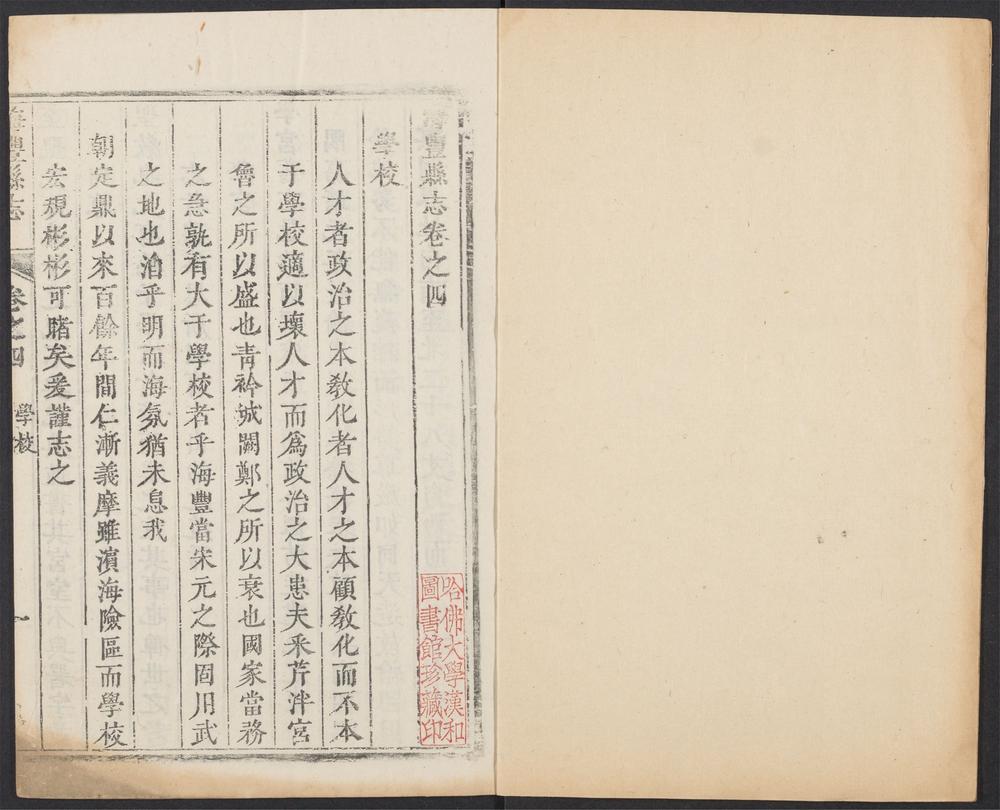 海豐縣志卷之四
學校
人才者政治之本敎化者人才之本顧敎化而不本
于學校適以壞人才而爲政治之大患夫釆芹泮宮
魯之所以盛也靑衿城闕鄭之所以衰也國家當務
之急孰有大于學校者乎海豐當宋元之際固用武
之地也洎乎明而海氛猶未息我
朝定鼎以來百餘年間仁漸義摩雖濱海險區而學校
宏規彬彬可睹矣爰謹志之
海豐縣志 卷之四 學校 一
哈佛大學漢和
圖書館珍藏印